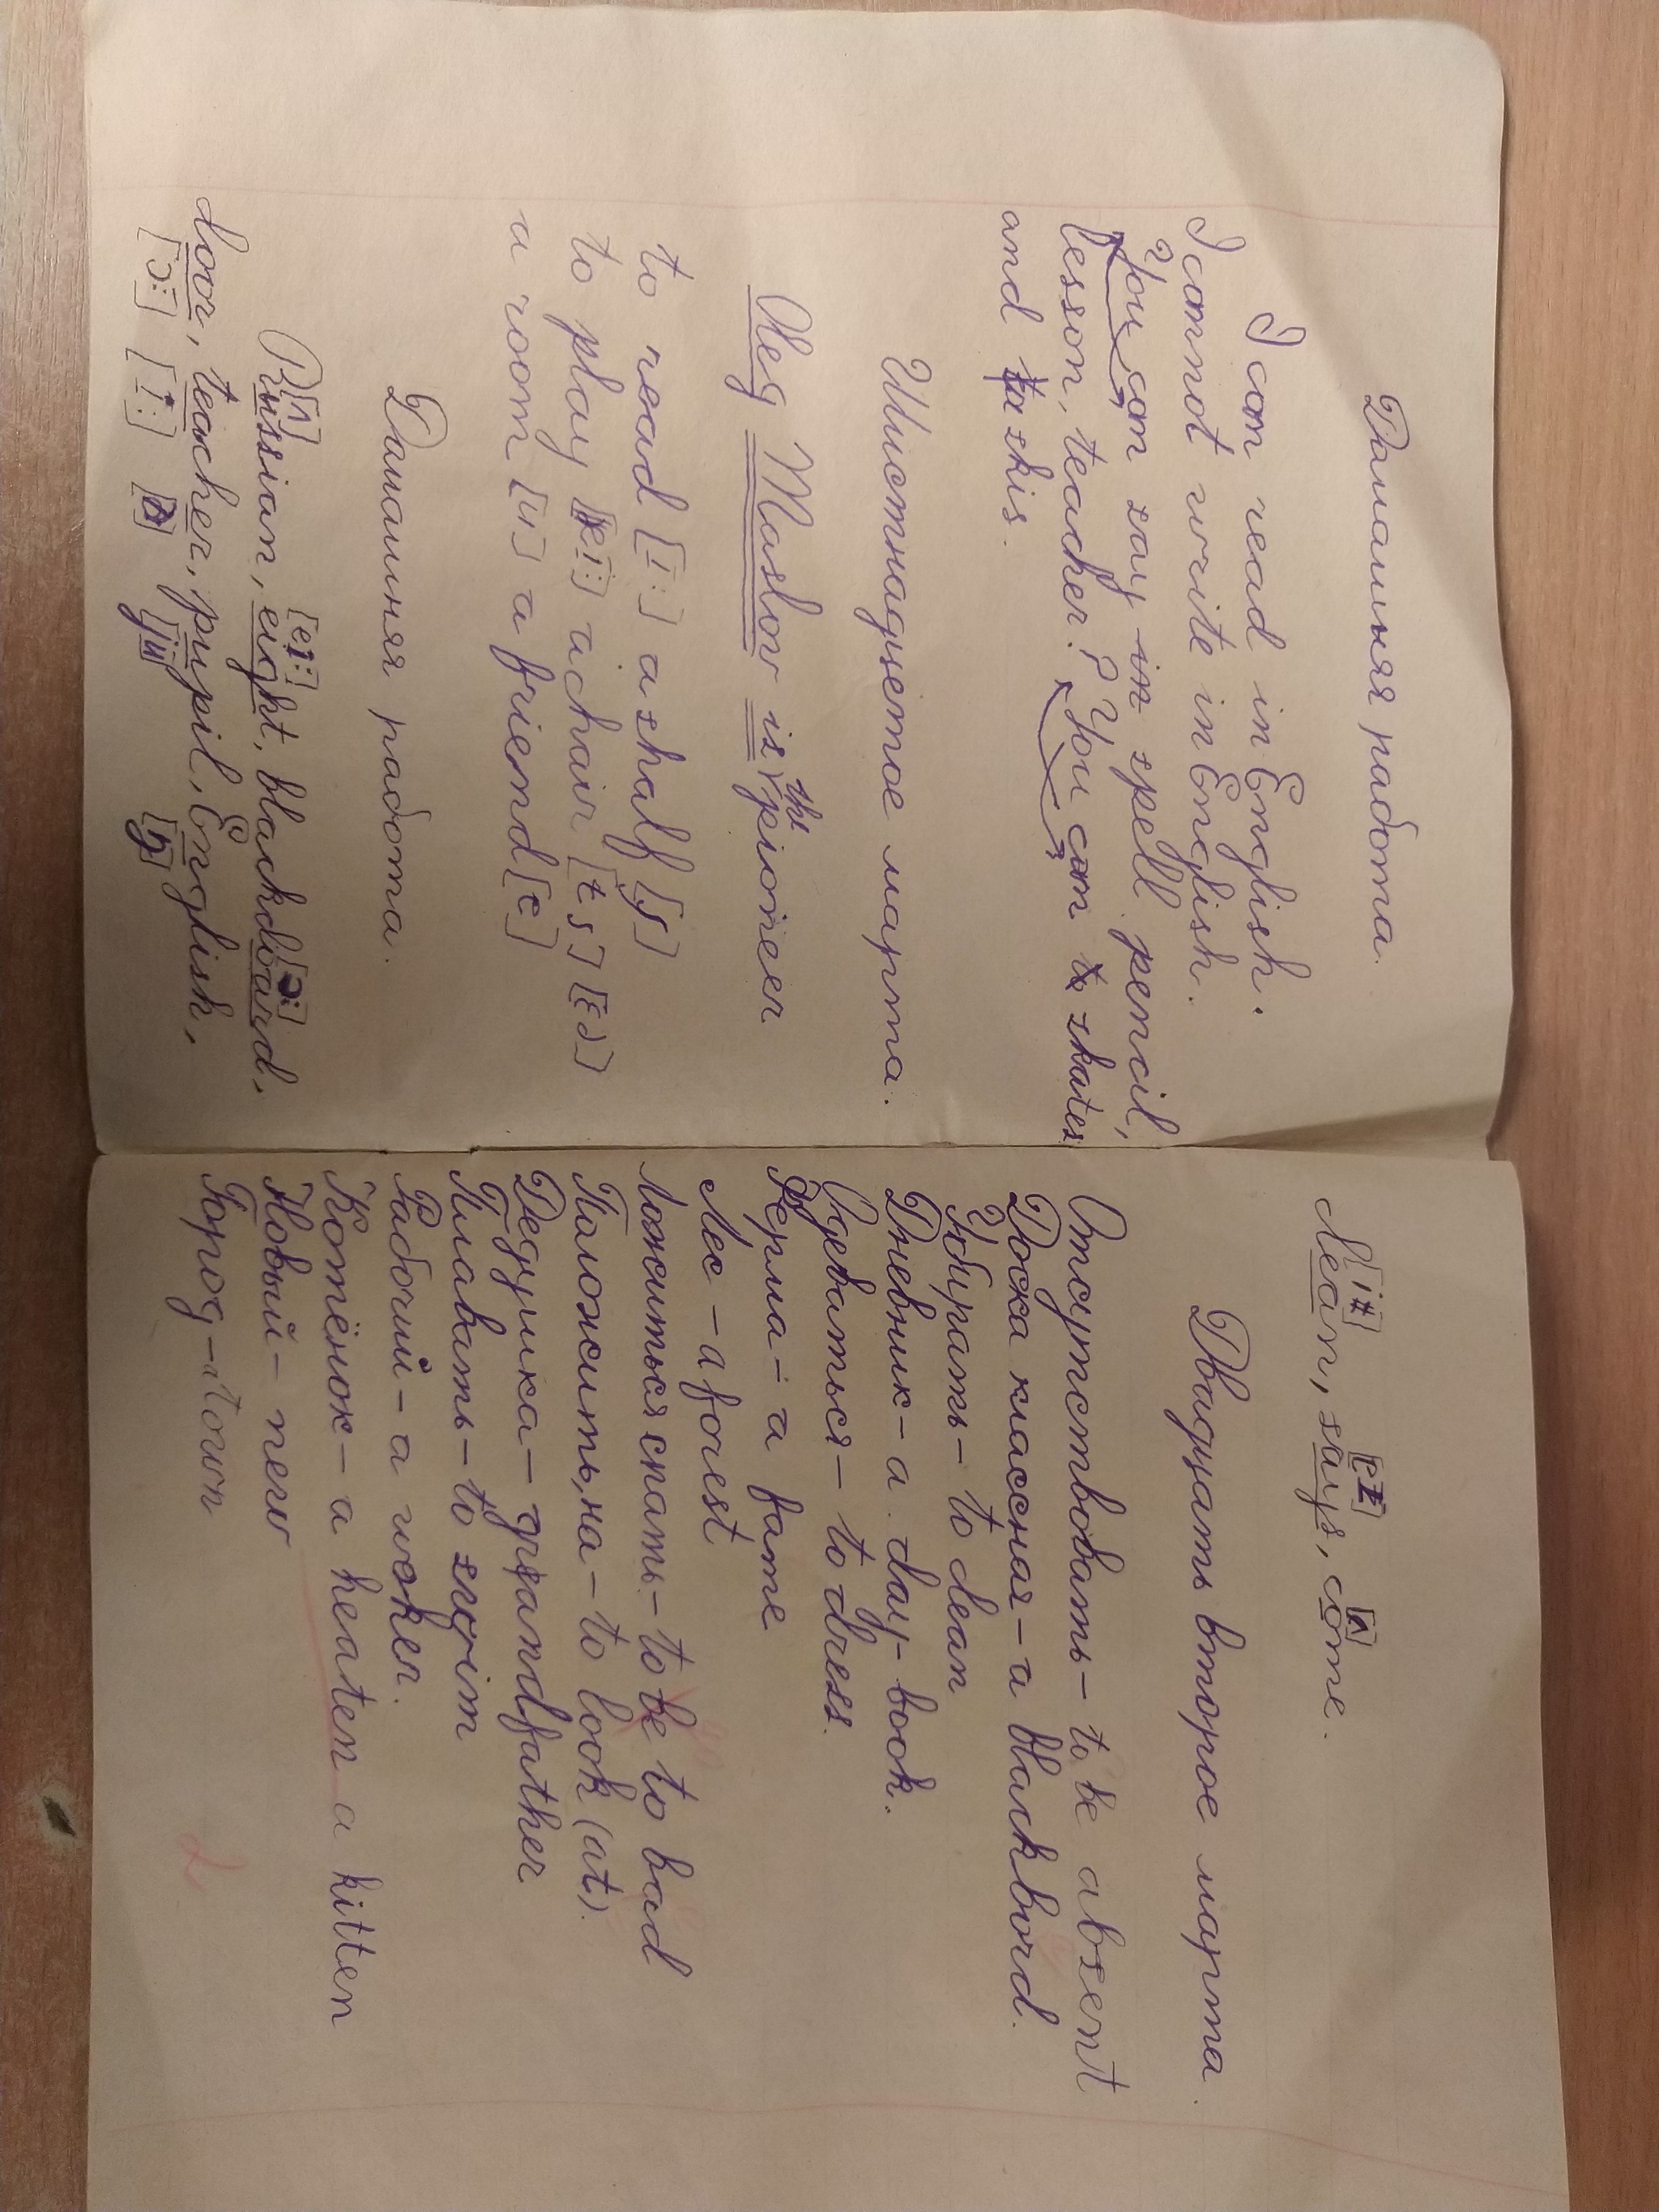 Домашняя работа.
I can read in English.
I cannot write in English.
You can say in spell pencil,
lesson, teacher? You can skates
and skis.
Шистнадцетое марта.
Oleg Maslov is the pioneer
to read [i:] a shalf [ʃ]
to play [ei] a chair [tʃ] [ɛə]
a room [u] a friend [e]
Домашняя работа.
[ʌ] [ei:] [ɔ:]
Russian, eight, blackdoard,
door, teacher, pupil, English,
[ɔ:] [i:] [ju] [ŋ]
[i:] [ʌ]
clean, says, come.
Двадцать второе марта.
Отсутствовать – to be absent
Доска классная – a blackbord.
Убирать – to clean
Дневник – a day-book.
Одеваться – to dress.
Ферма – a fame
Лес – a forest
Ложиться спать – to be to bad
Положить, на – to look (at).
Дедушка – grandfather
Плавать – to swim
Рабочий – a woker.
Котёнок – a heaten a kitten
Новый – new
Город – town
2